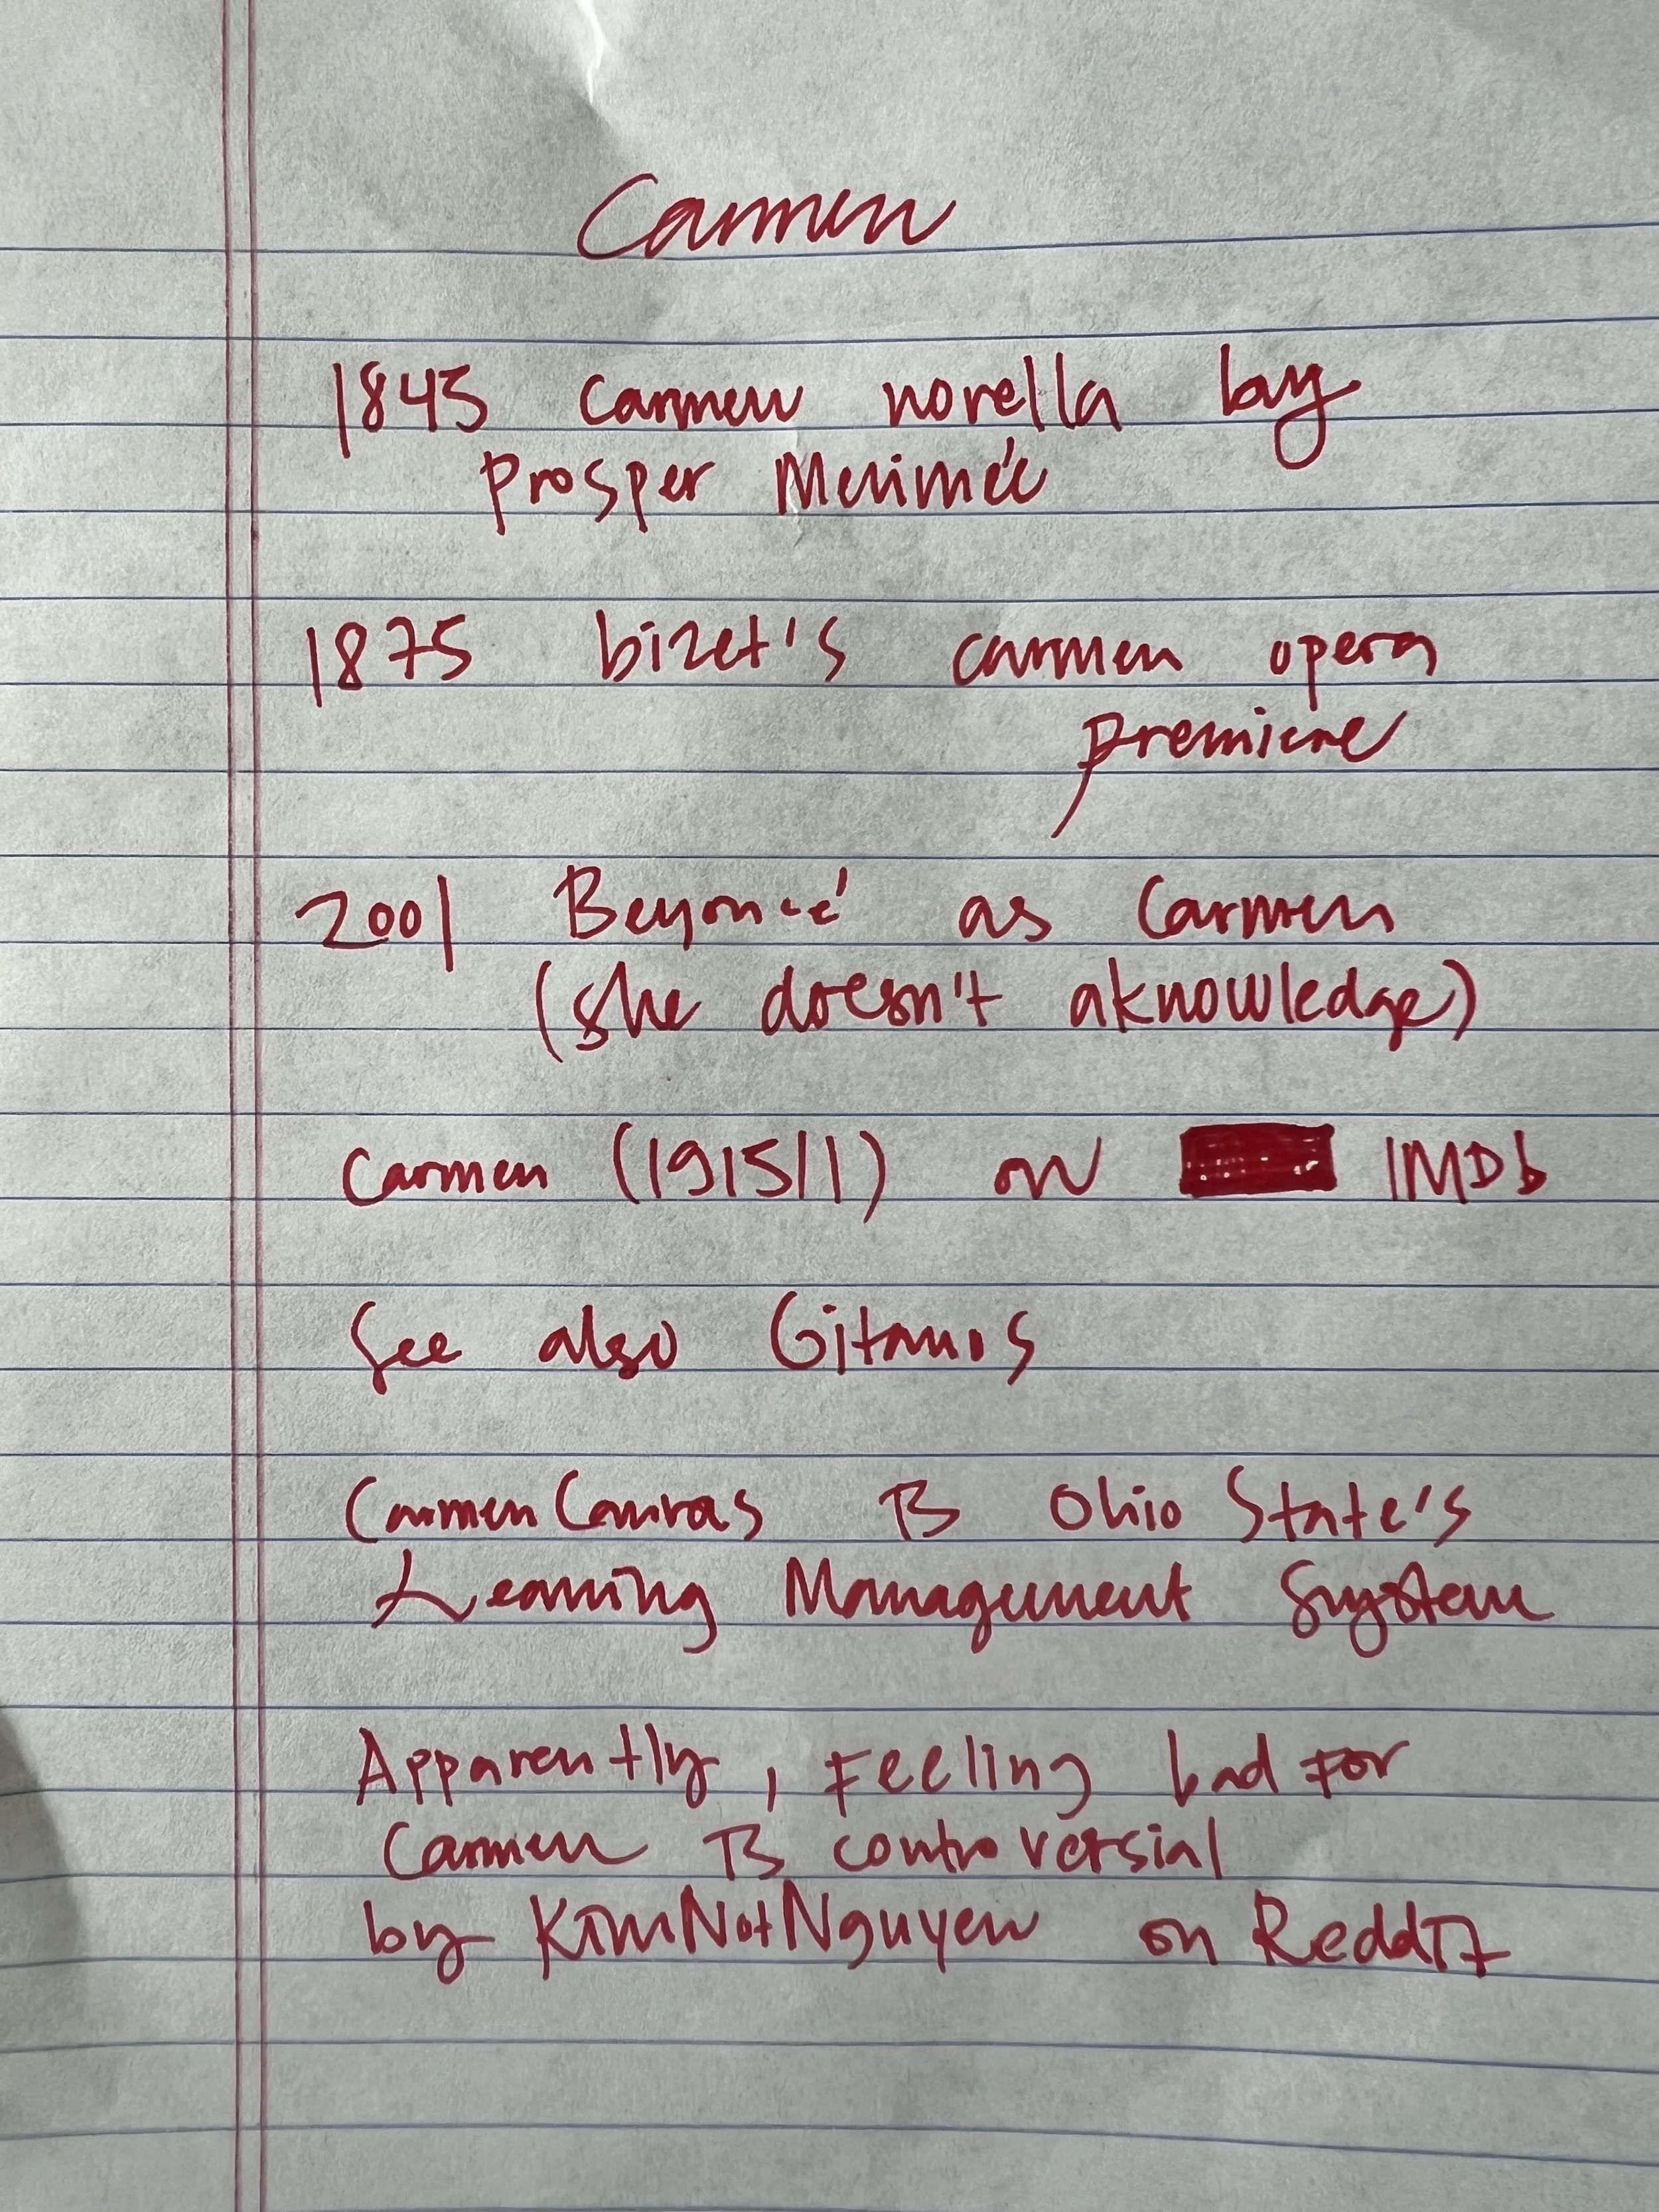 Carmen
1845 Carmen novella by
Prosper Merimée
1875 bizet's carmen opera
premiere
2001 Beyoncé as Carmen
(she doesn't aknowledge)
Carmen (1915/1) on IMDb
See also Gitanos
CarmenCanvas is Ohio State's
Learning Management System
Apparently, Feeling bad for
Carmen is controversial
by KimNotNguyen on Reddit